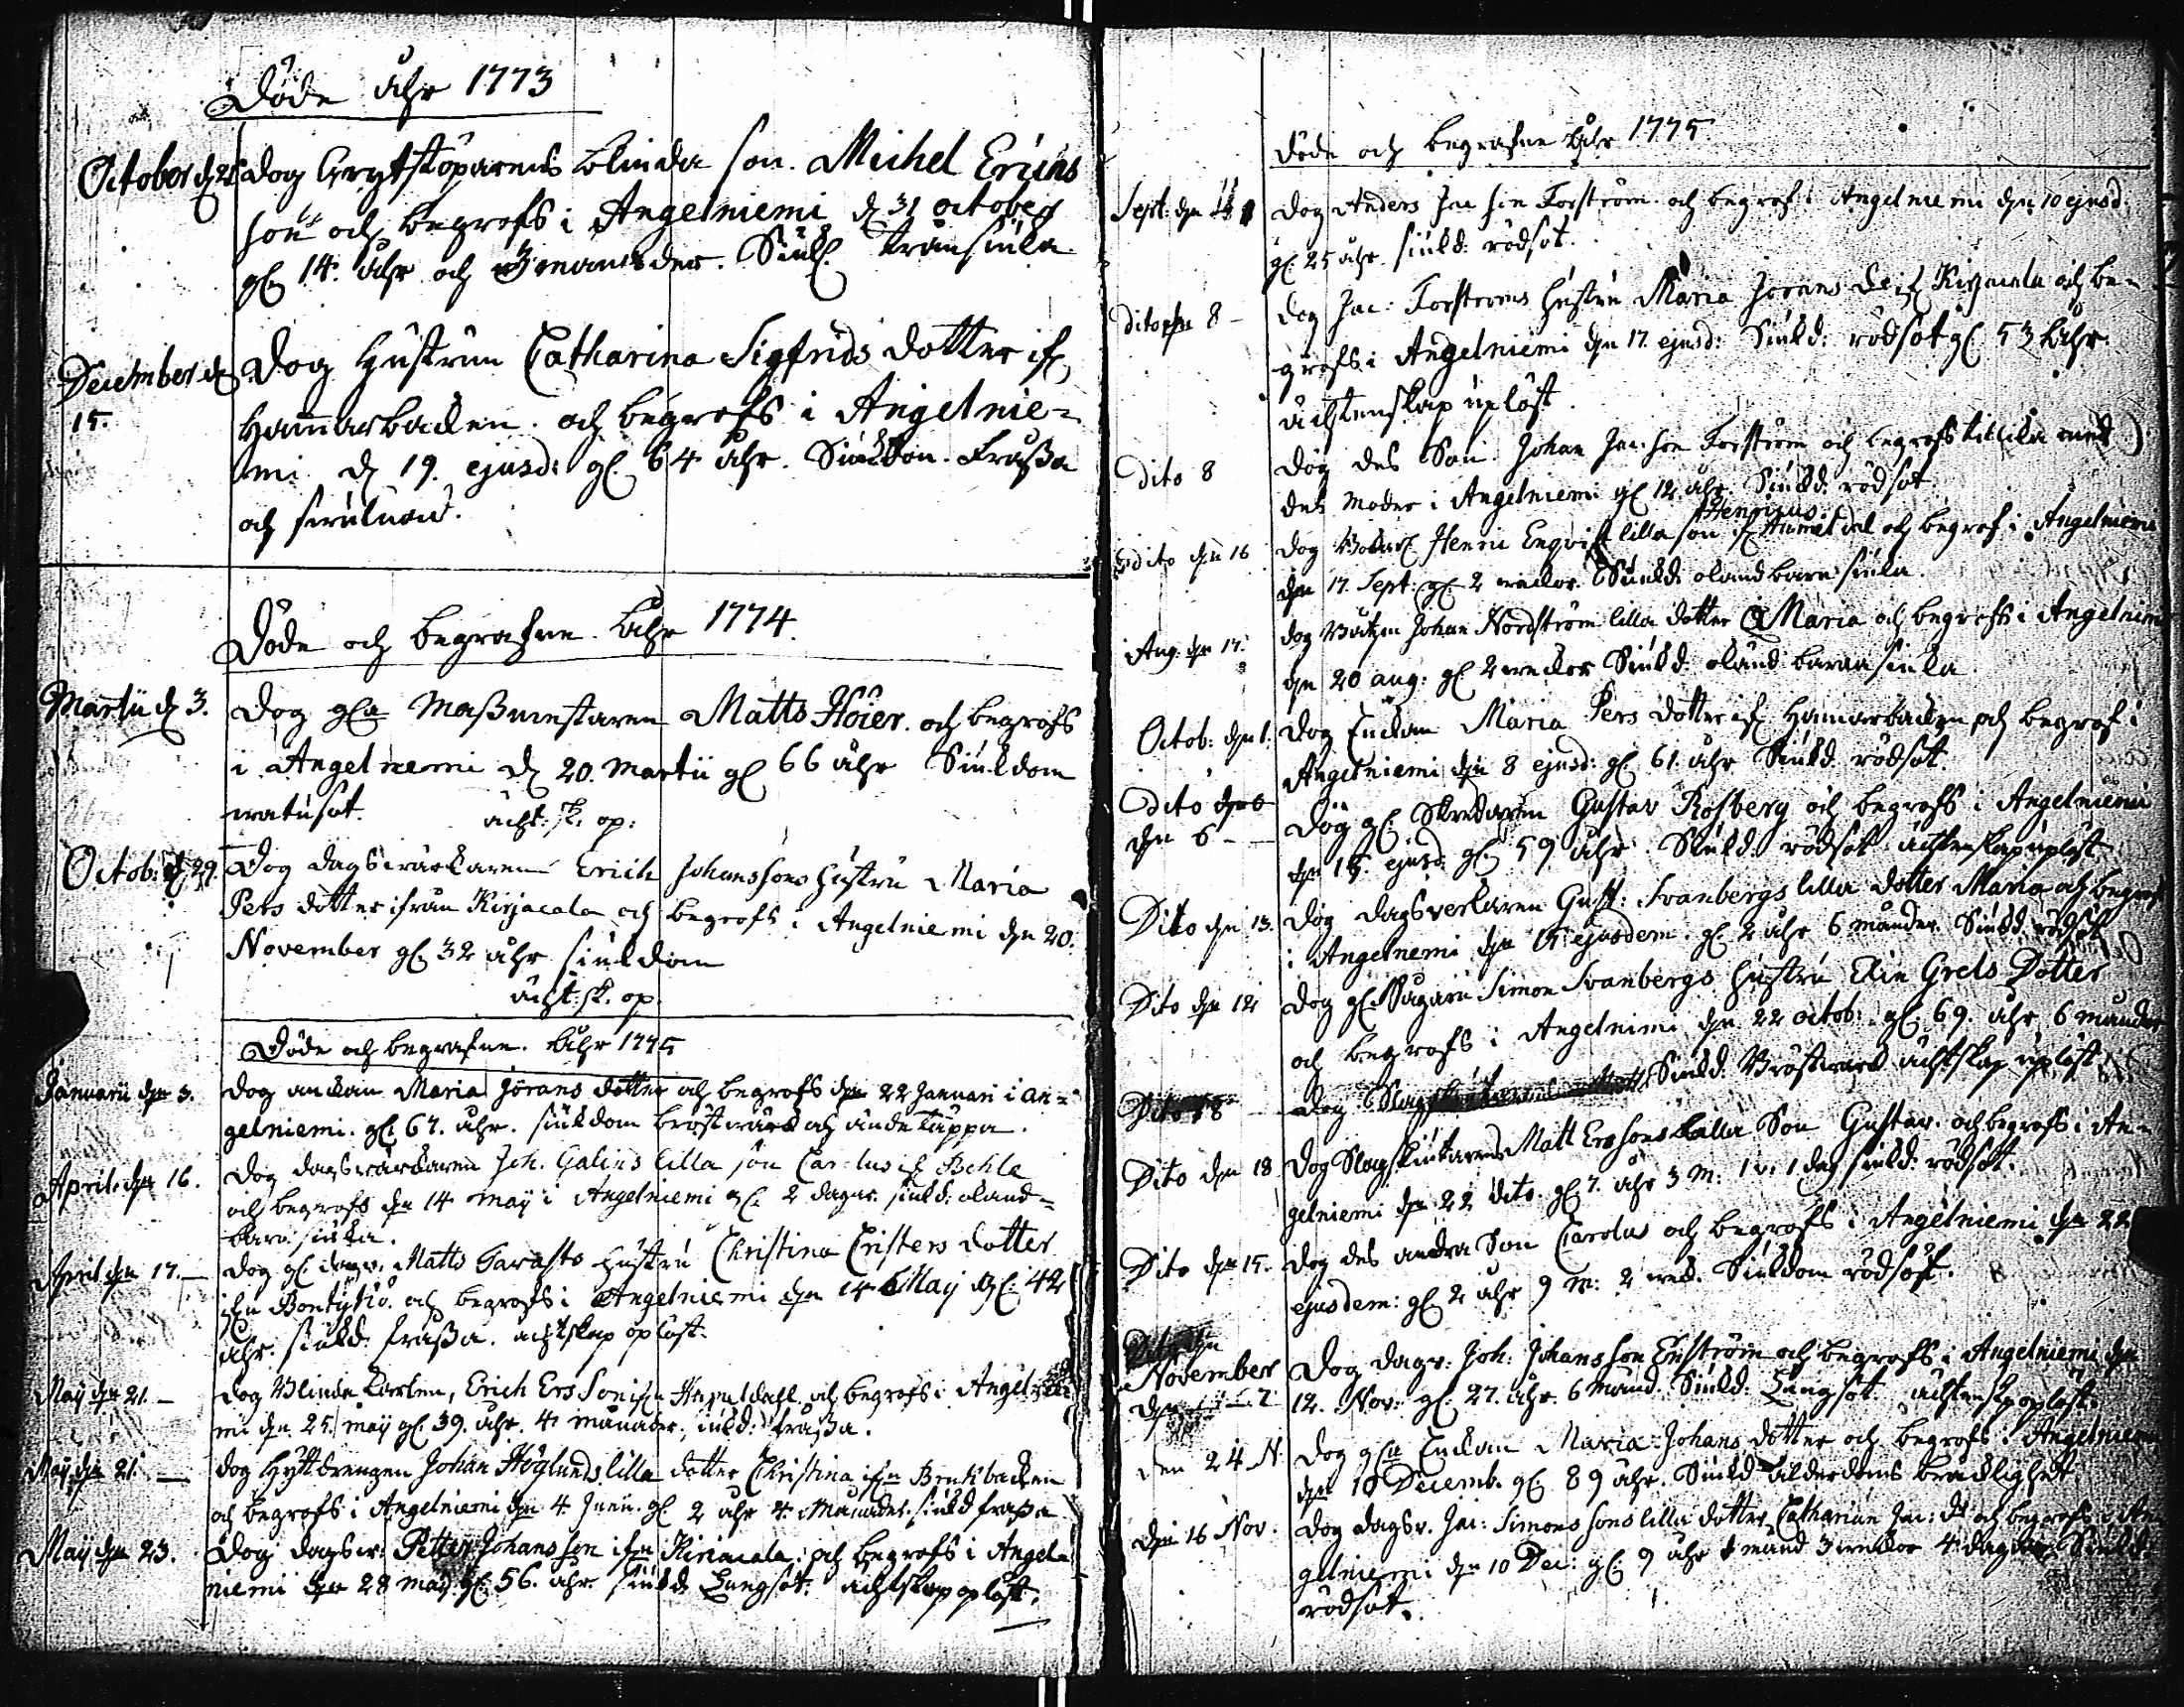 Döde åhr 1773
October d 25 dog Grytstöparens blinda son. Michel Erichs
son och begrofs i Angelniemi d 31 october
gl. 14. åhr och 3 månader. Siukd. Trånsiuka
December d Dog Hustrun Catharina Sigfrids dotter ifr
15. Hammarbacken. och begrofs i Angelnie=
mi d 19. ejusd: gl. 64 åhr. Siukdom. Frossa
och
Döde och begrafne åhr 1774.
Martii d 3. Dog gla Masmestaren Matts Höier. och begrofs
i Angelniemi d 20. Martii gl 66 åhr Siukdom
watusot. ächt: sk. op:
Octob: d 29. Dog dagswärckaren Erich Johanssons hustru Maria
Pers dotter ifrån Kirjacala och begrofs i Angelniemi den 20.
November gl. 32 åhr siukdom
ächt: sk. op.
Döde och begrafne. åhr 1775
Januarii den 3. Dog enckan Maria Jörans dotter och begrofs den 22 Januari i An=
gelniemi. gl. 67. åhr. siukdom bröstwärck och andetäppa.
April: den 16. Dog dagswärckaren Joh. Galins lilla son Carolus ifr
och begrofs den 14 maij i Angelniemi gl. 2 dagar. siukd. okänd=
barnsiuka.
April den 17. Dog gl. dagsv. Matts Tarasto hustru Christina Cristers dotter
ifrn och begrofs i Angelniemi den 14 Maij gl. 42
åhr. siukd. frossa. ächtskap oplöst.
Maij den 21. Dog Blinda Karlen, Erich Ersson ifrn och begrofs i Angelnie
mi den 25. maij gl. 39. åhr. 4 månader. siukd: frossa.
Maij den 21. Dog Hyttdrengen Johan Höglunds lilla dotter Christina ifrn Brukbacken
och begrofs i Angelniemi den 4. Junii. gl 2 åhr 4. Månader. siukd frossa
Maij den 23. Dog dagsw: Petter Johansson ifrn Kirjacala. och begrofs i Angel=
niemi den 28 maij gl. 56. åhr siukd: Lungsot. ächtskap oplöst.
Döde och begrafne åhr 1775
Sept. den Dog Anders Jac son Forström. och begrof i Angelniemi den 10 ejusd.
gl. 25 åhr siukd: rödsot.
Dito den 8 - Dog Jac: Forströms hustru Maria Jörans d ifr Kirjacala och be=
grofs i Angelniemi den 17. ejusd: Siukd: rödsot gl. 53 åhr.
ächtenskap uplöst
Dito 8 Dog des Son. Johan Jac: son Forström och begrofs tillika med
dess moder i Angelniemi gl 12 åhr Siukd: rödsot.
dito den 16 Dog Henric Enqvist lilla son Henricus och begrof i Angelniemi
den 17. Sept: gl. 2 weckor. Siukd: okänd barnsiuka.
Aug. den 17. Dog Johan Nordström lilla dotter Maria och begrofs i Angelniemi
den 20 aug: gl. 2 weckor Siukd: okänd barnasiuka
Octob: den 1. Dog Enckan Maria Pers dotter ifr Hammarbacken och begrof i
Angelniemi den 8 ejusd: gl. 61 åhr Siukd: rödsot.
dito
den 6 - Dog gl. Skredaren Gustav Rosberg och begrofs i Angelniemi
den 15. ejusd: gl. 59 åhr. Siukd: rödsot ächtenskap uplöst
Dito den 13. Dog dagsverkaren Gust: Svanbergs lilla dotter Maria och begrof
i Angelnemi den 15 ejusdem. gl. 2 åhr 6 månder. Siukd: rödsot
Dito den 12 Dog gl. Simon Svanbergs hustru Elin Grels Dotter
och begrofs i Angelnimi den 22 octob: gl. 69. åhr 6 månder
Siukd. Bröstwärck ächtskap uplöst
Dito 18 Dog
Dito den 18 Dog Matt Erssons lilla Son Gustav. och begrofs i An=
gelniemi den 22 dito. gl. 7. åhr 3 m: 1 v. 1 dag siukd: rödsot.
Dito den 15. Dog des andra Son Carolus och begrofs i Angelniemi den 22
ejusdem: gl 2 åhr 9 m: 2 wec. Siukdom rödsot.
November Dog dagsv: Joh: Johansson Enström och begrofs i Angelniemi den
den 7 12. Nov: gl. 27. åhr. 6 månd. Siukd: Lungsot. ächtensk oplöst.
den 24 N. Dog gla Enckan Maria Johans dotter och begrofs i Angelniemi
den 10 Decemb. gl. 89 åhr. Siukd ålderdoms bräcklighet
den 16 Nov. Dog dagsv. Jac: Simons sons lilla dotter Catharina Jac: dr och begrofs i An=
gelniemi den 10 Dec: gl. 9 åhr månd 3 weckor 4 dagar. Siukd:
rödsot.